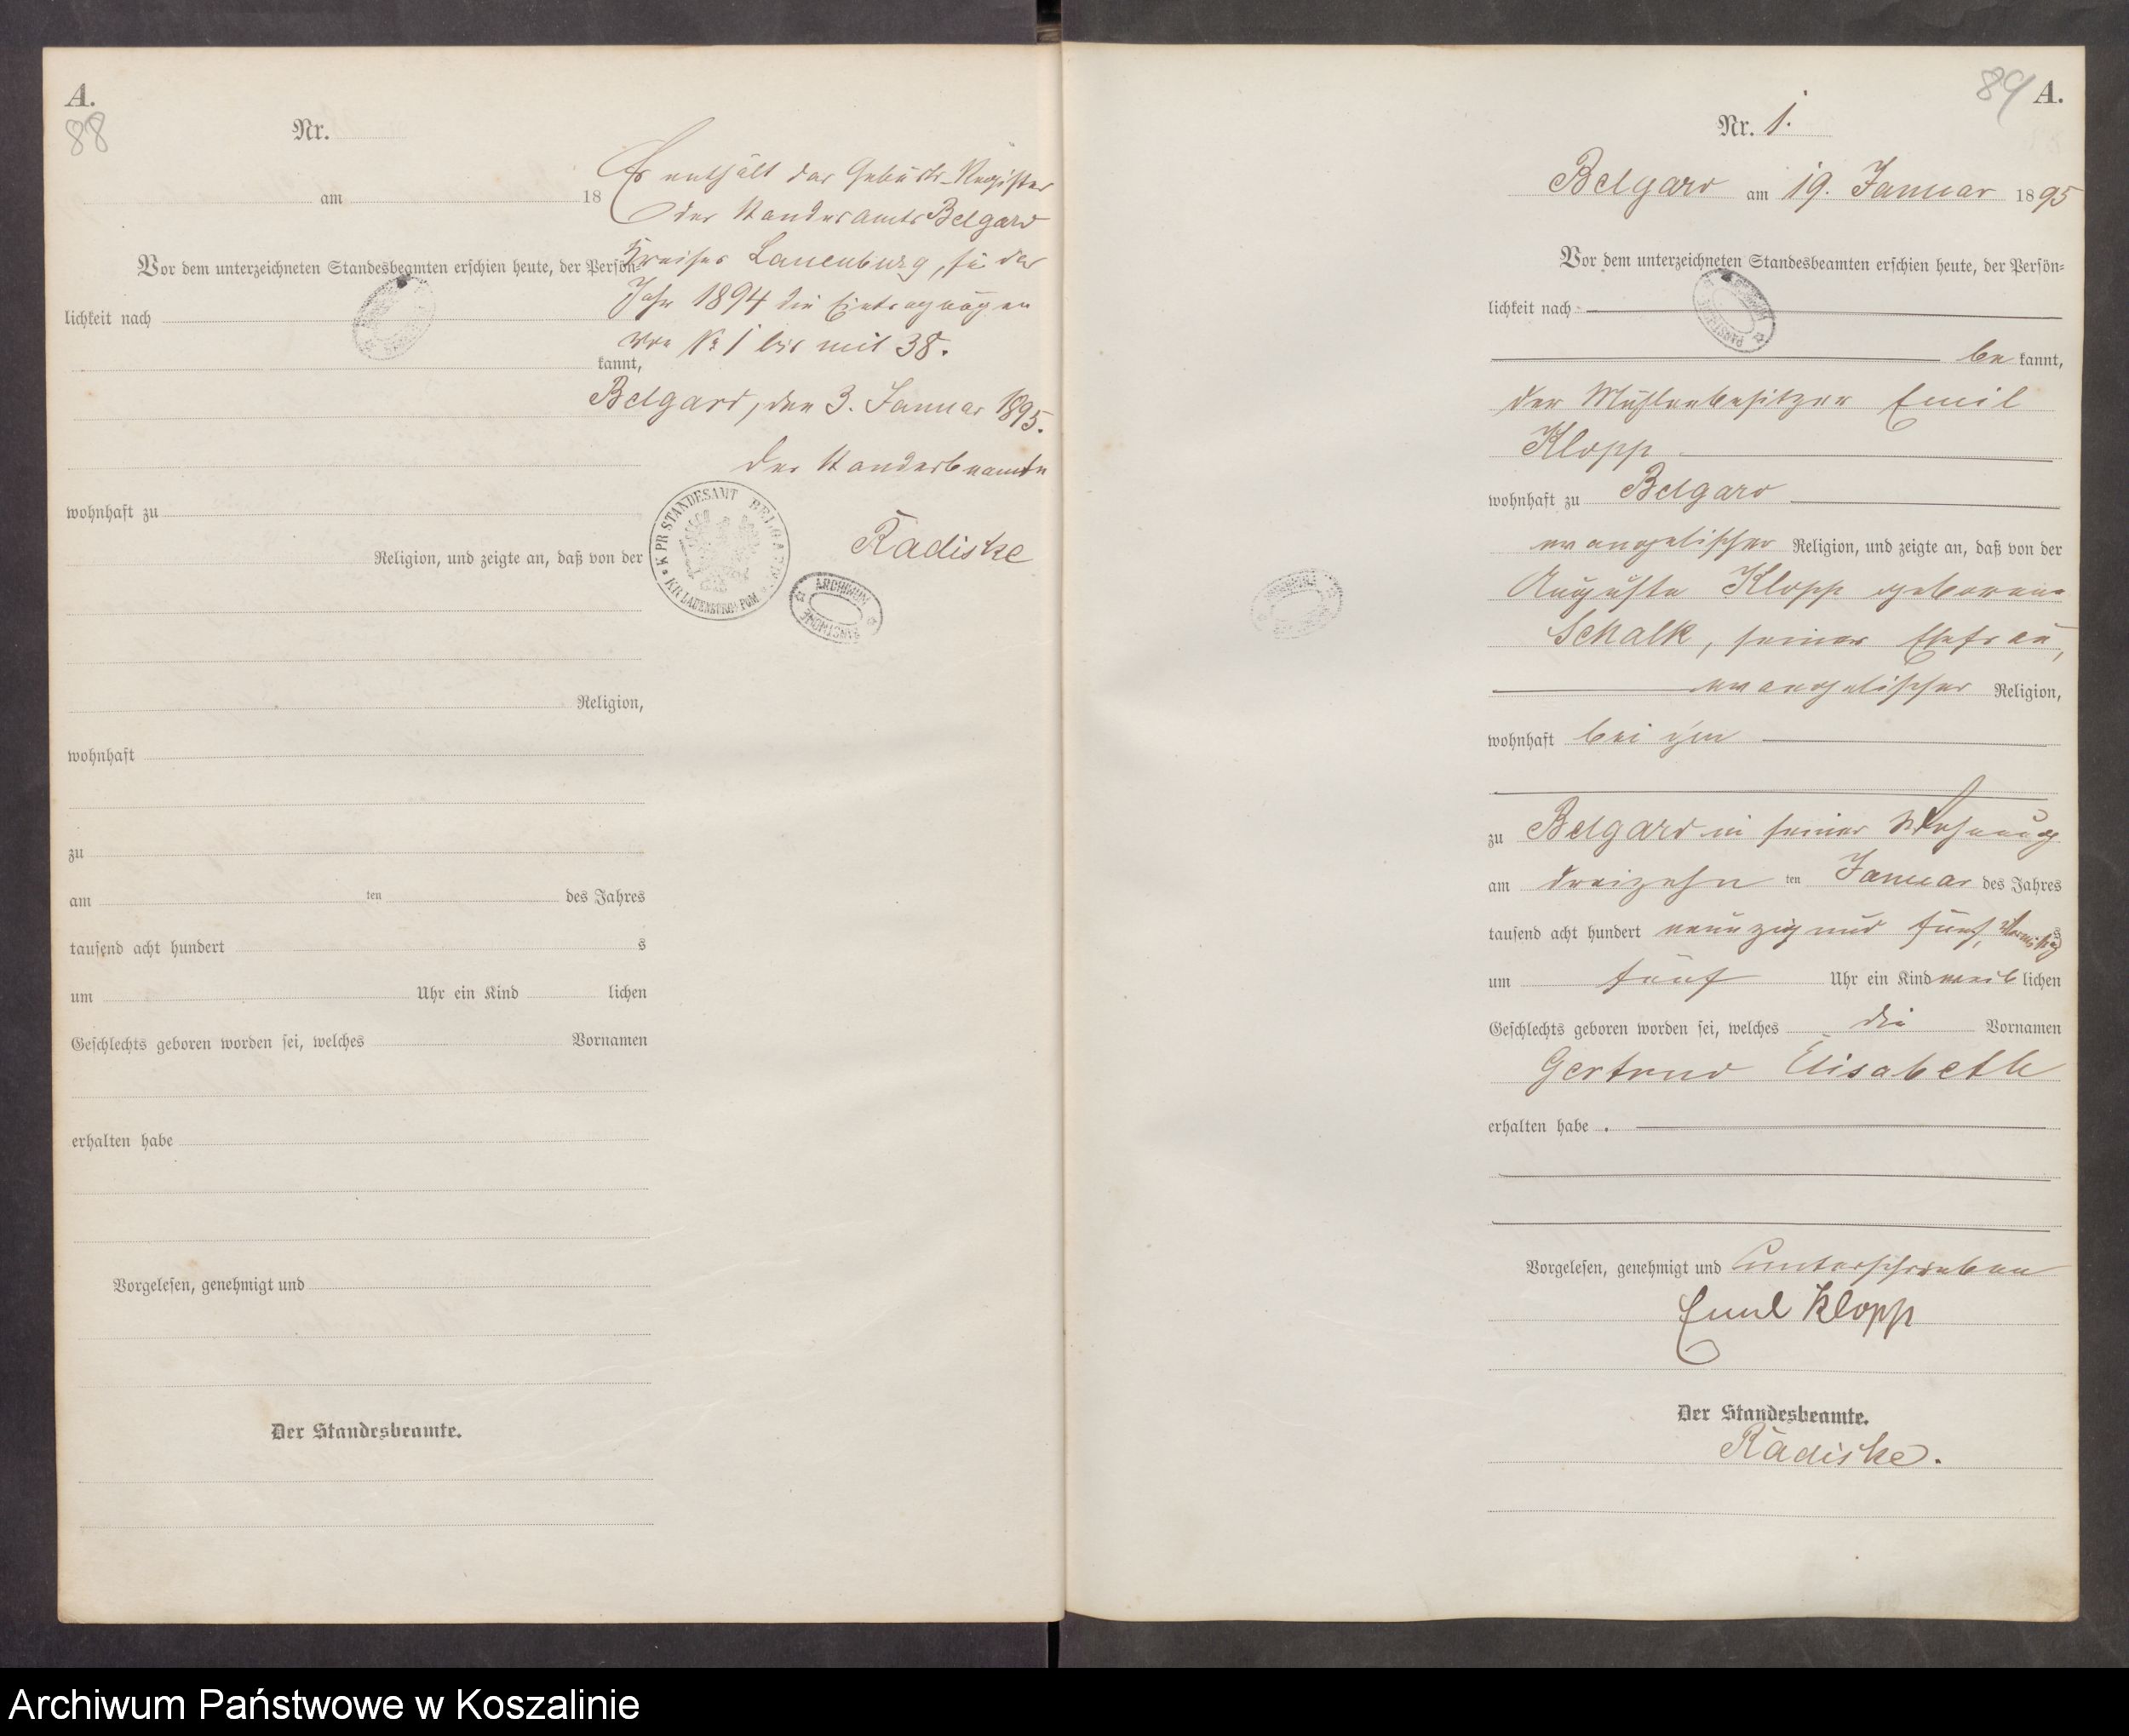 A.
88
Nr.
am 18
Vor dem unterzeichneten Standesbeamten erschien heute, der Persön-
lichkeit nach
kannt,
wohnhaft zu
Religion, und zeigte an, daß von der
Religion,
wohnhaft
zu
am ten des Jahres
tausend acht hundert s
um Uhr ein Kind lichen
Geschlechts geboren worden sei, welches Vornamen
erhalten habe
Vorgelesen, genehmigt und
Der Standesbeamte.
Es enthält das Geburts-Register
des Standesamts Belgard
Kreises Lauenburg, für das
Jahr 1894 die Eintragungen
von No 1 bis mit 38.
Belgard, den 3. Januar 1895.
Der Standesbeamte
Radiske
K. PR STANDESAMT BELGARD
KR LAUENBURG POM
ARCHIWUM
PAŃSTWOWE
89 A.
Nr. 1.
Belgard am 19. Januar 1895
Vor dem unterzeichneten Standesbeamten erschien heute, der Persön-
lichkeit nach
be kannt,
der Mühlenbesitzer Emil
Klopp
wohnhaft zu Belgard
evangelischer Religion, und zeigte an, daß von der
Auguste Klopp geborene
Schalk, seiner Ehefrau,
evangelischer Religion,
wohnhaft bei ihm
zu Belgard in seiner Wohnung
am dreizehn ten Januar des Jahres
tausend acht hundert neunzig und fünf, Vormittags
um fünf Uhr ein Kind weib lichen
Geschlechts geboren worden sei, welches die Vornamen
Gertrud Elisabeth
erhalten habe.
Vorgelesen, genehmigt und unterschrieben
Emil Klopp
Der Standesbeamte.
Radiske.
Archiwum Państwowe w Koszalinie